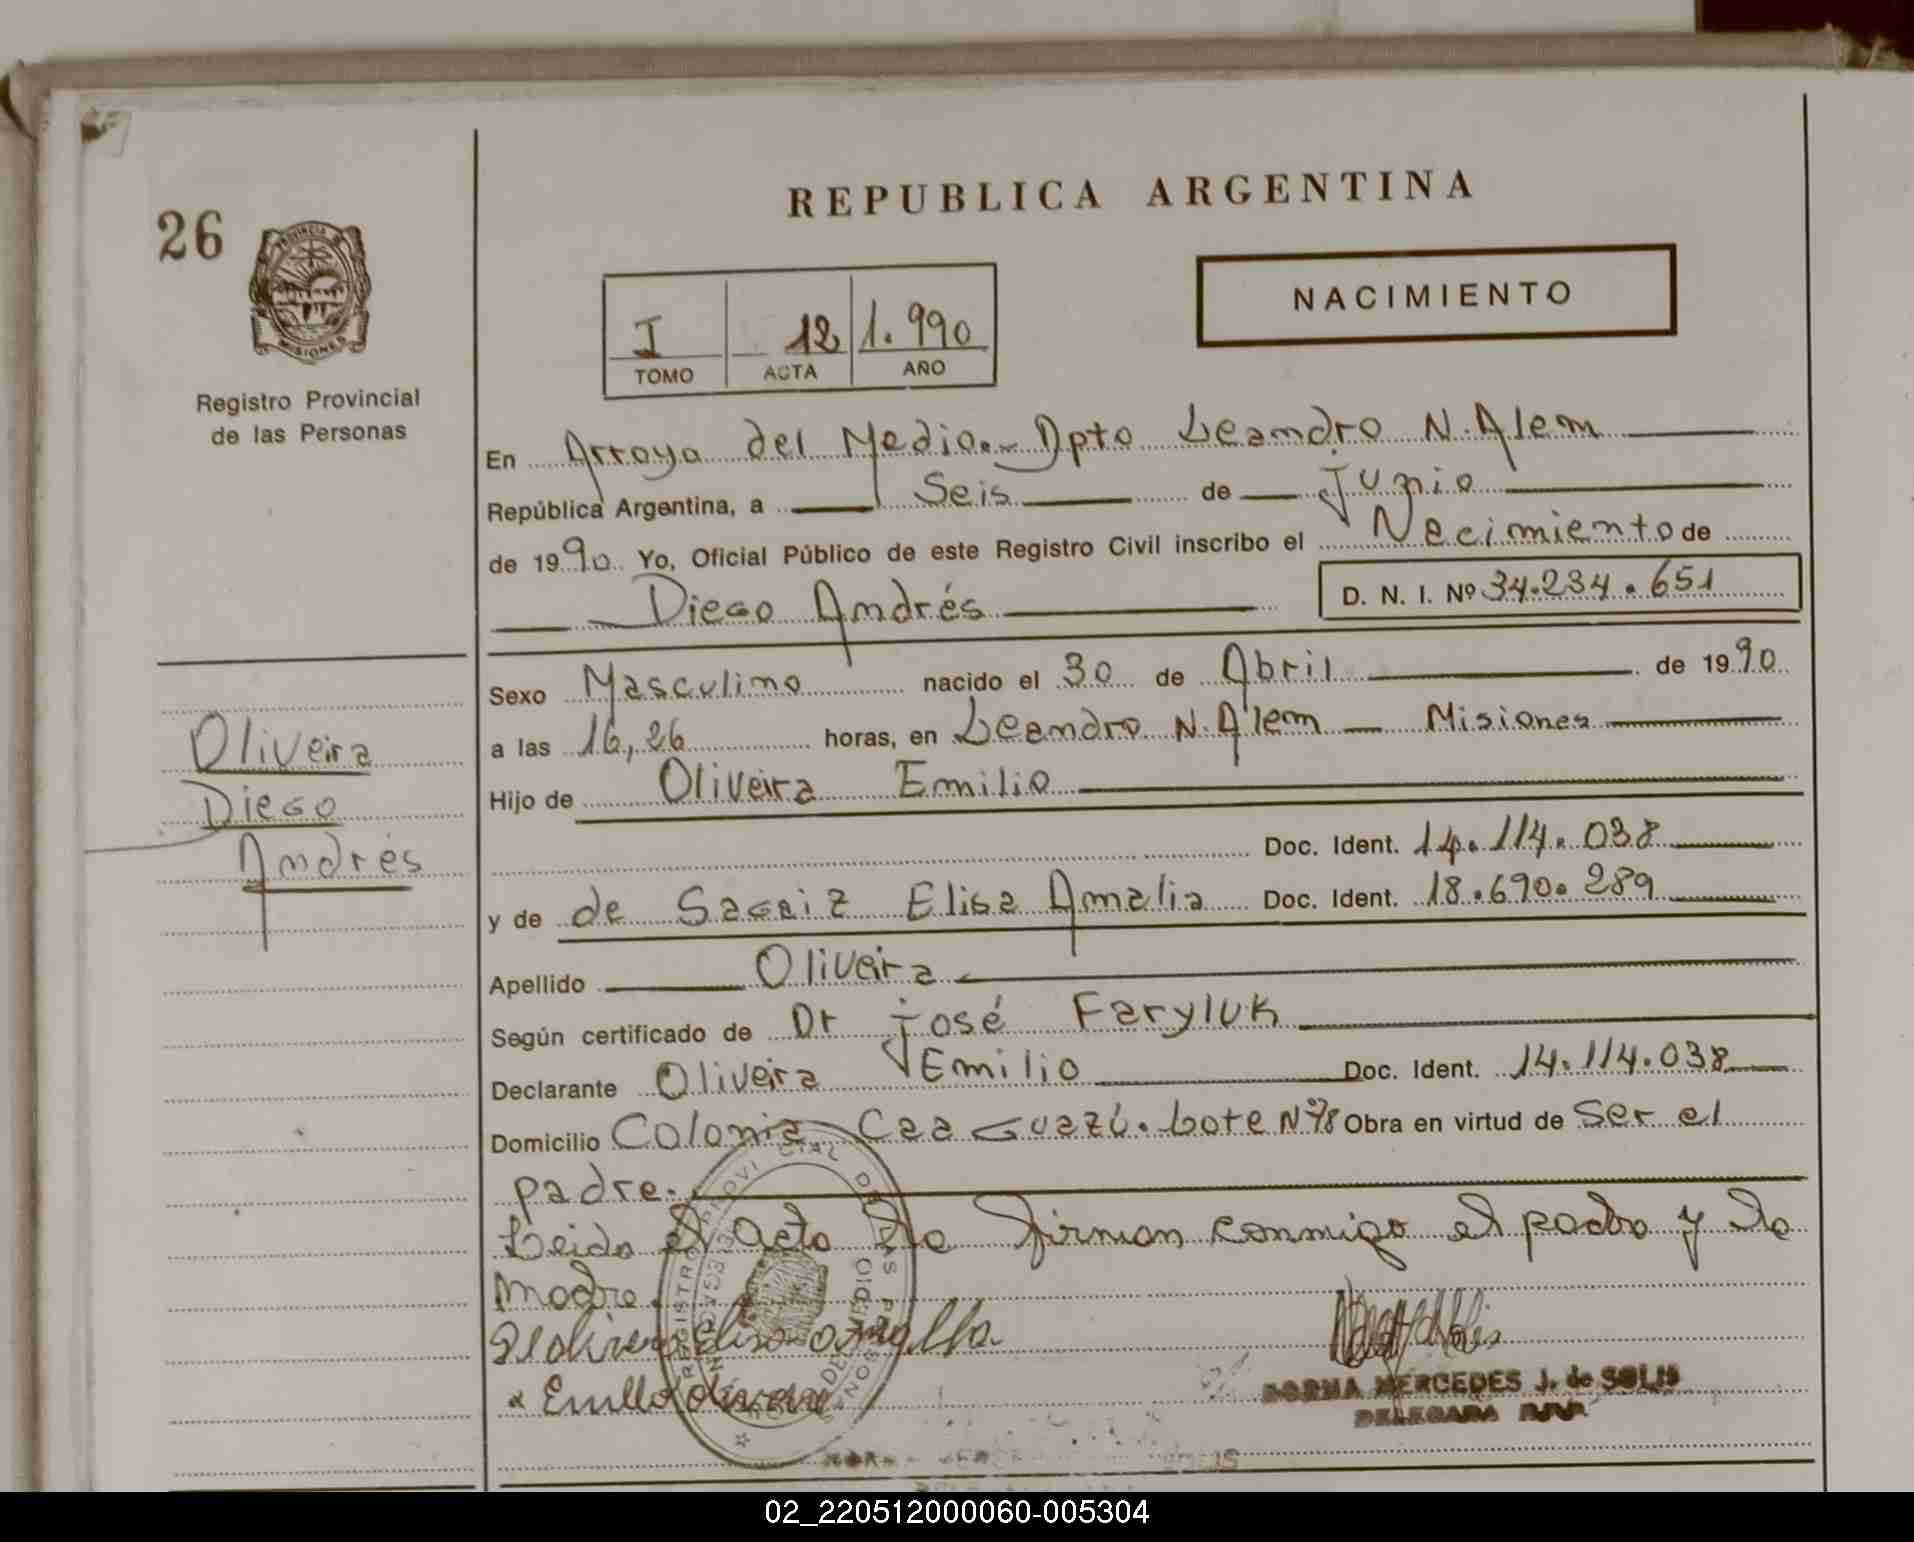 REPUBLICA ARGENTINA
26
PROVINCIA DE
MISIONES
Registro Provincial
de las Personas
I 12 1.990
TOMO ACTA AÑO
NACIMIENTO
En Arroyo del Medio.- Dpto Leandro N. Alem
República Argentina, a Seis de Junio
de 1990 Yo, Oficial Público de este Registro Civil inscribo el Nacimiento de
Diego Andrés D. N. I. Nº 34.234.651
Sexo Masculino nacido el 30 de Abril de 1990
a las 16,26 horas, en Leandro N. Alem - Misiones
Hijo de Oliveira Emilio
Doc. Ident. 14.114.038
y de de Sagaiz Elisa Amalia Doc. Ident. 18.690.289
Apellido Oliveira
Según certificado de Dr José Faryluk
Declarante Oliveira Emilio Doc. Ident. 14.114.038
Domicilio Colonia Caa Guazú. Lote Nº 78 Obra en virtud de Ser el
padre.
Leida el acta la firman conmigo el padre y la
madre.
Oliveira
Diego
Andrés
Emilio Oliveira
NORMA MERCEDES J. de SOLIS
DELEGADA R.P.P.
02_220512000060-005304